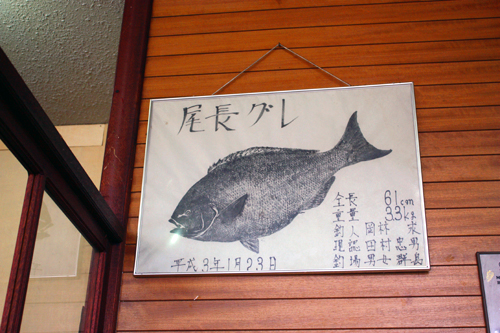 尾長グレ
全長 61cm
重量 3.3kg
釣人 岡林
現認 田村忠男
釣場 男女群島
平成3年1月23日